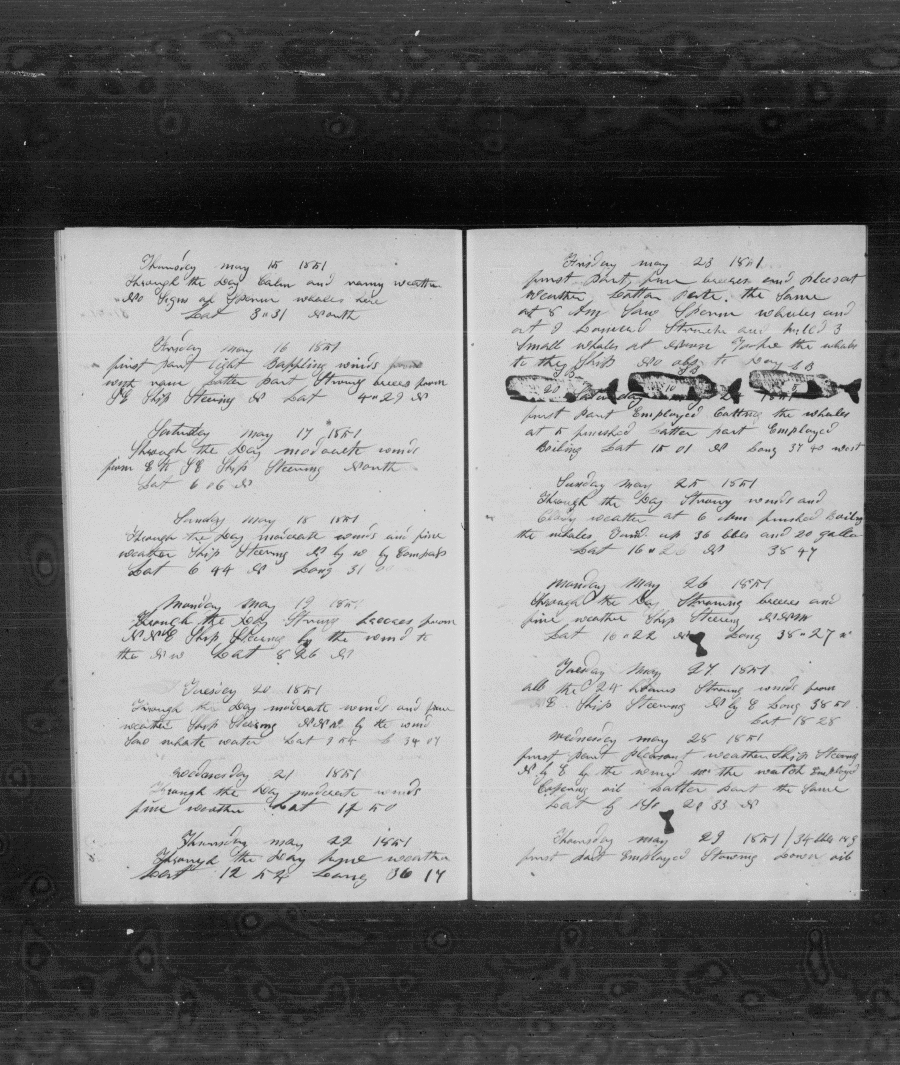 Thursday may 15 1851
Through the Day Calm and rainy weather
No Signs of Sperm whales here
Lat 3"31 North
Friday may 16 1851
first part light Baffling winds from
with rain Latter part Strong breeses from
SE Ship Steering N Lat 4"29 N
Saturday may 17 1851
Through the Day moderate winds
from E to SE Ship Steering North
Lat 6"06 N
Sunday may 18 1851
Through the Day moderate winds and fine
weather Ship Steering N by W by Compass
Lat 6 44 N Long 31
Monday may 19 1851
Through the Day Strong breeses from
NNE Ship Steering by the wind to
the NW Lat 8 26 N
Tuesday 20 1851
Through the Day moderate winds and fine
weather Ship Steering NNW by the wind
Saw white water Lat 9 54 34 07
Wednesday 21 1851
Through the Day moderate winds
fine weather Lat 50
Thursday may 22 1851
Through the Day fine weather
Lat 12 54 Long 36 17
Friday may 23 1851
first part fine breeses and pleasat
weather Latter Parte the Same
at 8 Am Saw Sperm whales and
at 9 Lowered Struck and killed 3
Small whales at Noon Took the whales
to the Ship No obs to Day
20 10 5
Saturday 1851
first Part Employed Cutting the whales
at 5 finished Latter part Employed
Boiling Lat 15 01 N Long 37 40 west
Sunday may 25 1851
Through the Day Strong winds and
weather at 6 Am finished Boiling
the whales up 36 bbls and 20 gallon
Lat 16"26 N 38 47
Monday may 26 1851
Through the Day Strong breeses and
fine weather Ship Steering
Lat 16"22 N Long 38"27
Tuesday may 27 1851
all the 24 hours Strong winds from
E Ship Steering N by E Long 38 50
Lat 18 28
Wednesday may 28 1851
first part pleasant weather Ship Steering
N by E by the wind the watch Employed
oil Latter part the Same
Lat by 20 33 N
Thursday may 29 1851
first part Employed Stowing Down oil